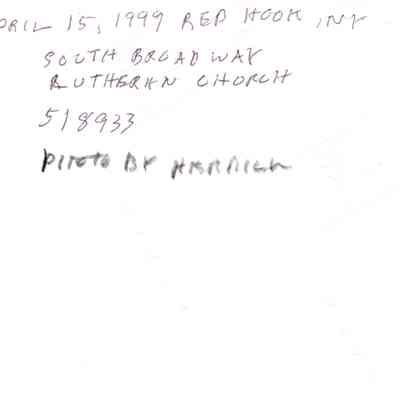 PRIL 15, 1999 RED HOOK, NY
SOUTH BROADWAY
LUTHERAN CHURCH
518933
PHOTO BY